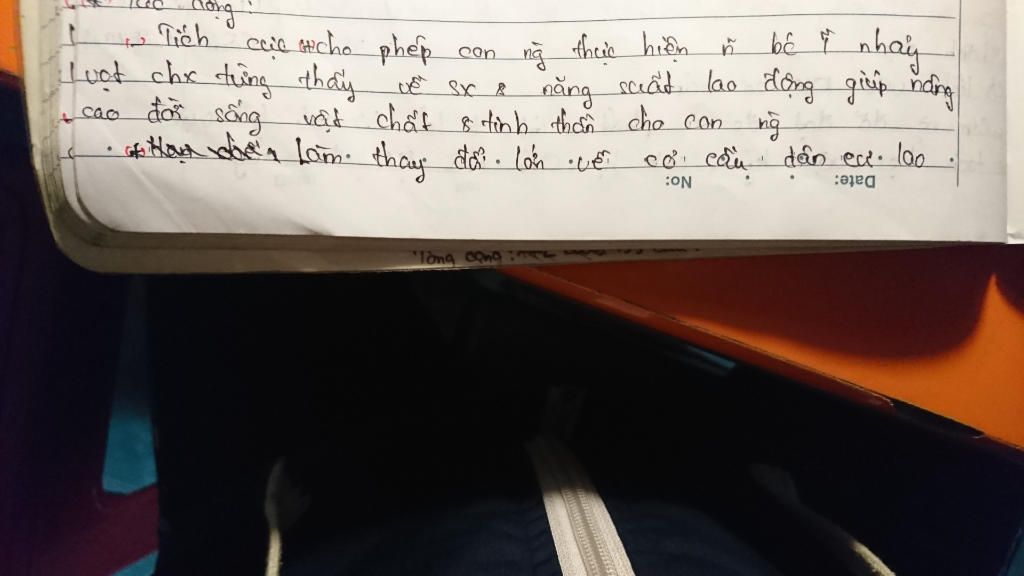 động:
→ Tích cực + cho phép con ng̃ thực hiện ñ bc ̃ nhảy
vọt chx từng thấy về sx & năng suất lao động giúp nâng
cao đời sống vật chất & tinh thần cho con ng̃
+ Hạn chế: Làm thay đổi lớn về cơ cấu dân cư lao
Date: No: